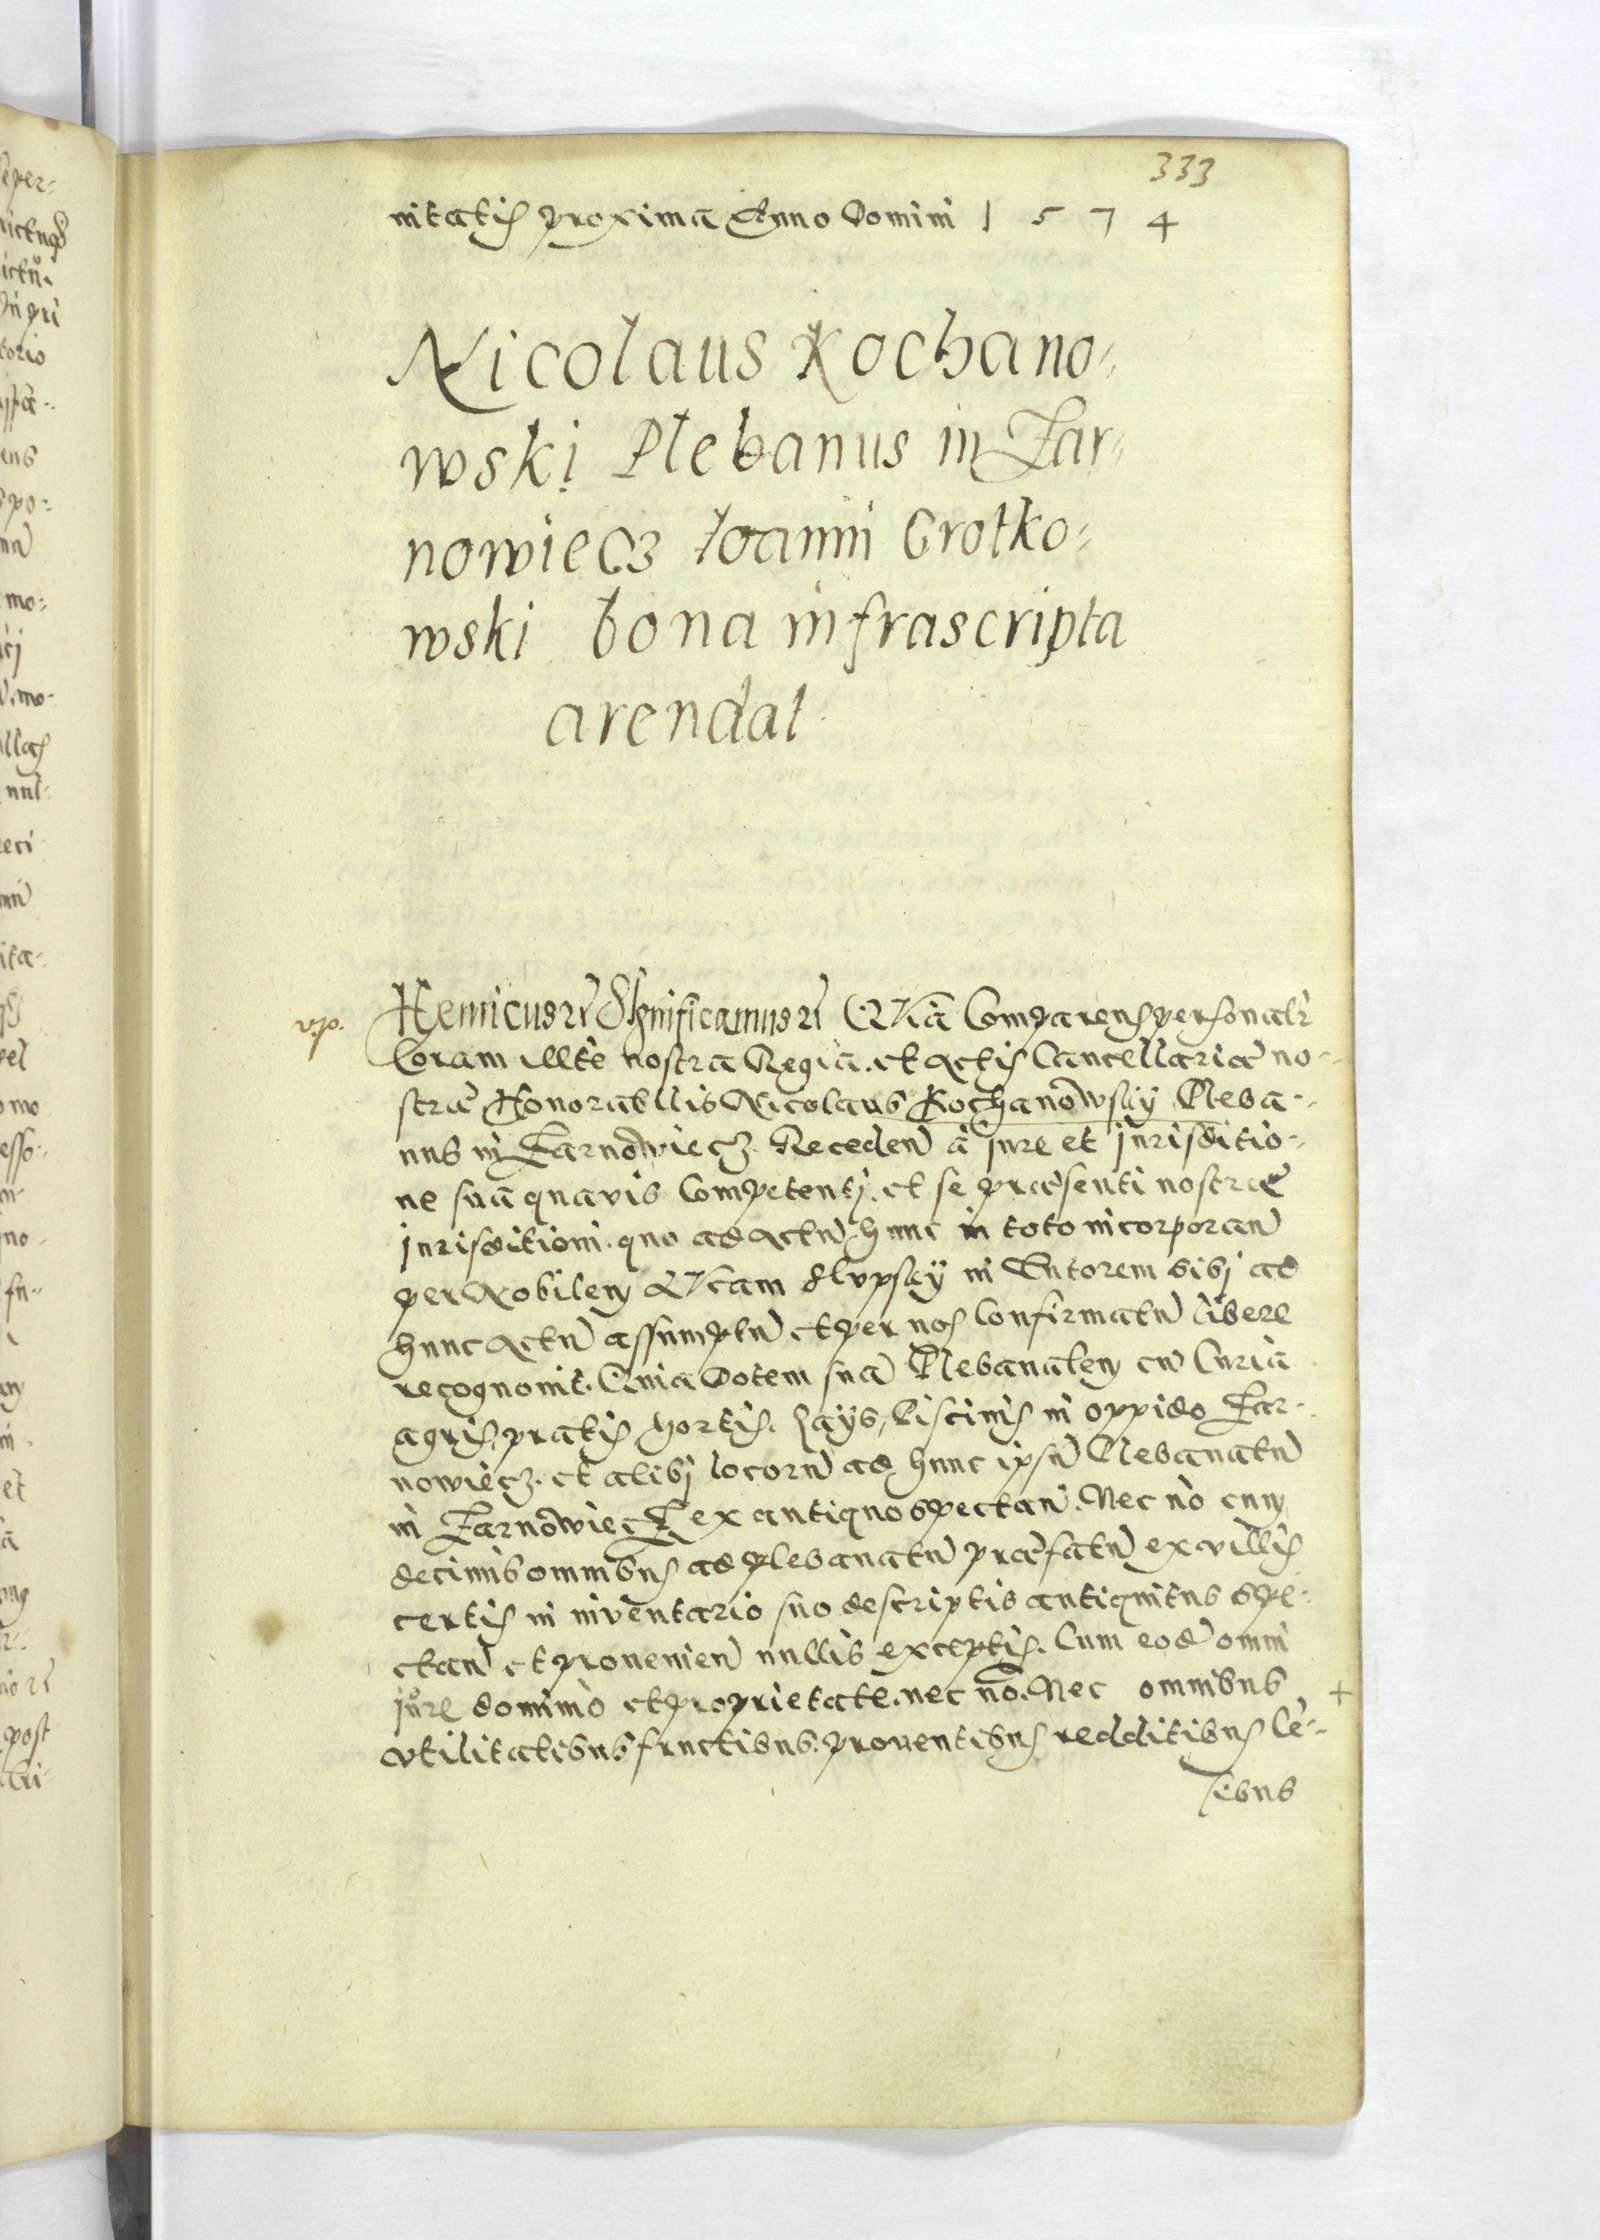 333
nitatis proxima Anno Domini 1 5 7 4
Nicolaus Kochano-
wski Plebanus in Zar-
nowiecz Ioanni Grotko-
wski bona infrascripta
arendat
v.p.
Henricus etc Significamus etc Quia Comparens personalr
Coram Mte nostra Regia. et Actis Cancellariae no-
strae Honorabilis Nicolaus Kochanowsky Pleba-
nus in Zarnowiecz. Receden à jure et jurisditio-
ne sua quavis Competentj. et se praesenti nostrae
jurisditioni. quo ad Actu hunc in toto incorporan
per Nobilem Slupsky in tutorem sibj ad
hunc Actu assumptu et per nos Confirmatu libere
recognovit. Quia Dotem sua Plebanalem cu Curia
agris, pratis hortis. Piscinis in oppido Zar-
nowiecz. et alibj locoru ad hunc ipsu Plebanatu
in Zarnowiecz ex antiquo spectan. Nec no cum
decimis omnibus ad plebanatu praefatu ex villis
certis in inventario suo descriptis antiquitus spe-
ctan et provenien nullis exceptis. Cum eod omni
jure dominio et proprietate. nec no. Nec omnibus +
vtilitatibus fructibus. proventibus redditibus Ce-
sibus